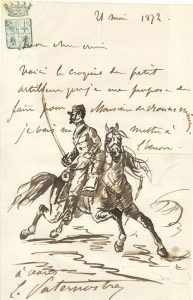 21 mai 1872.
Mon cher ami
Voici le croquis du petit
artilleur que je me propose de
faire pour Monsieur de
je vais me mettre à
l'œuvre.
à vous
L. Paternostre